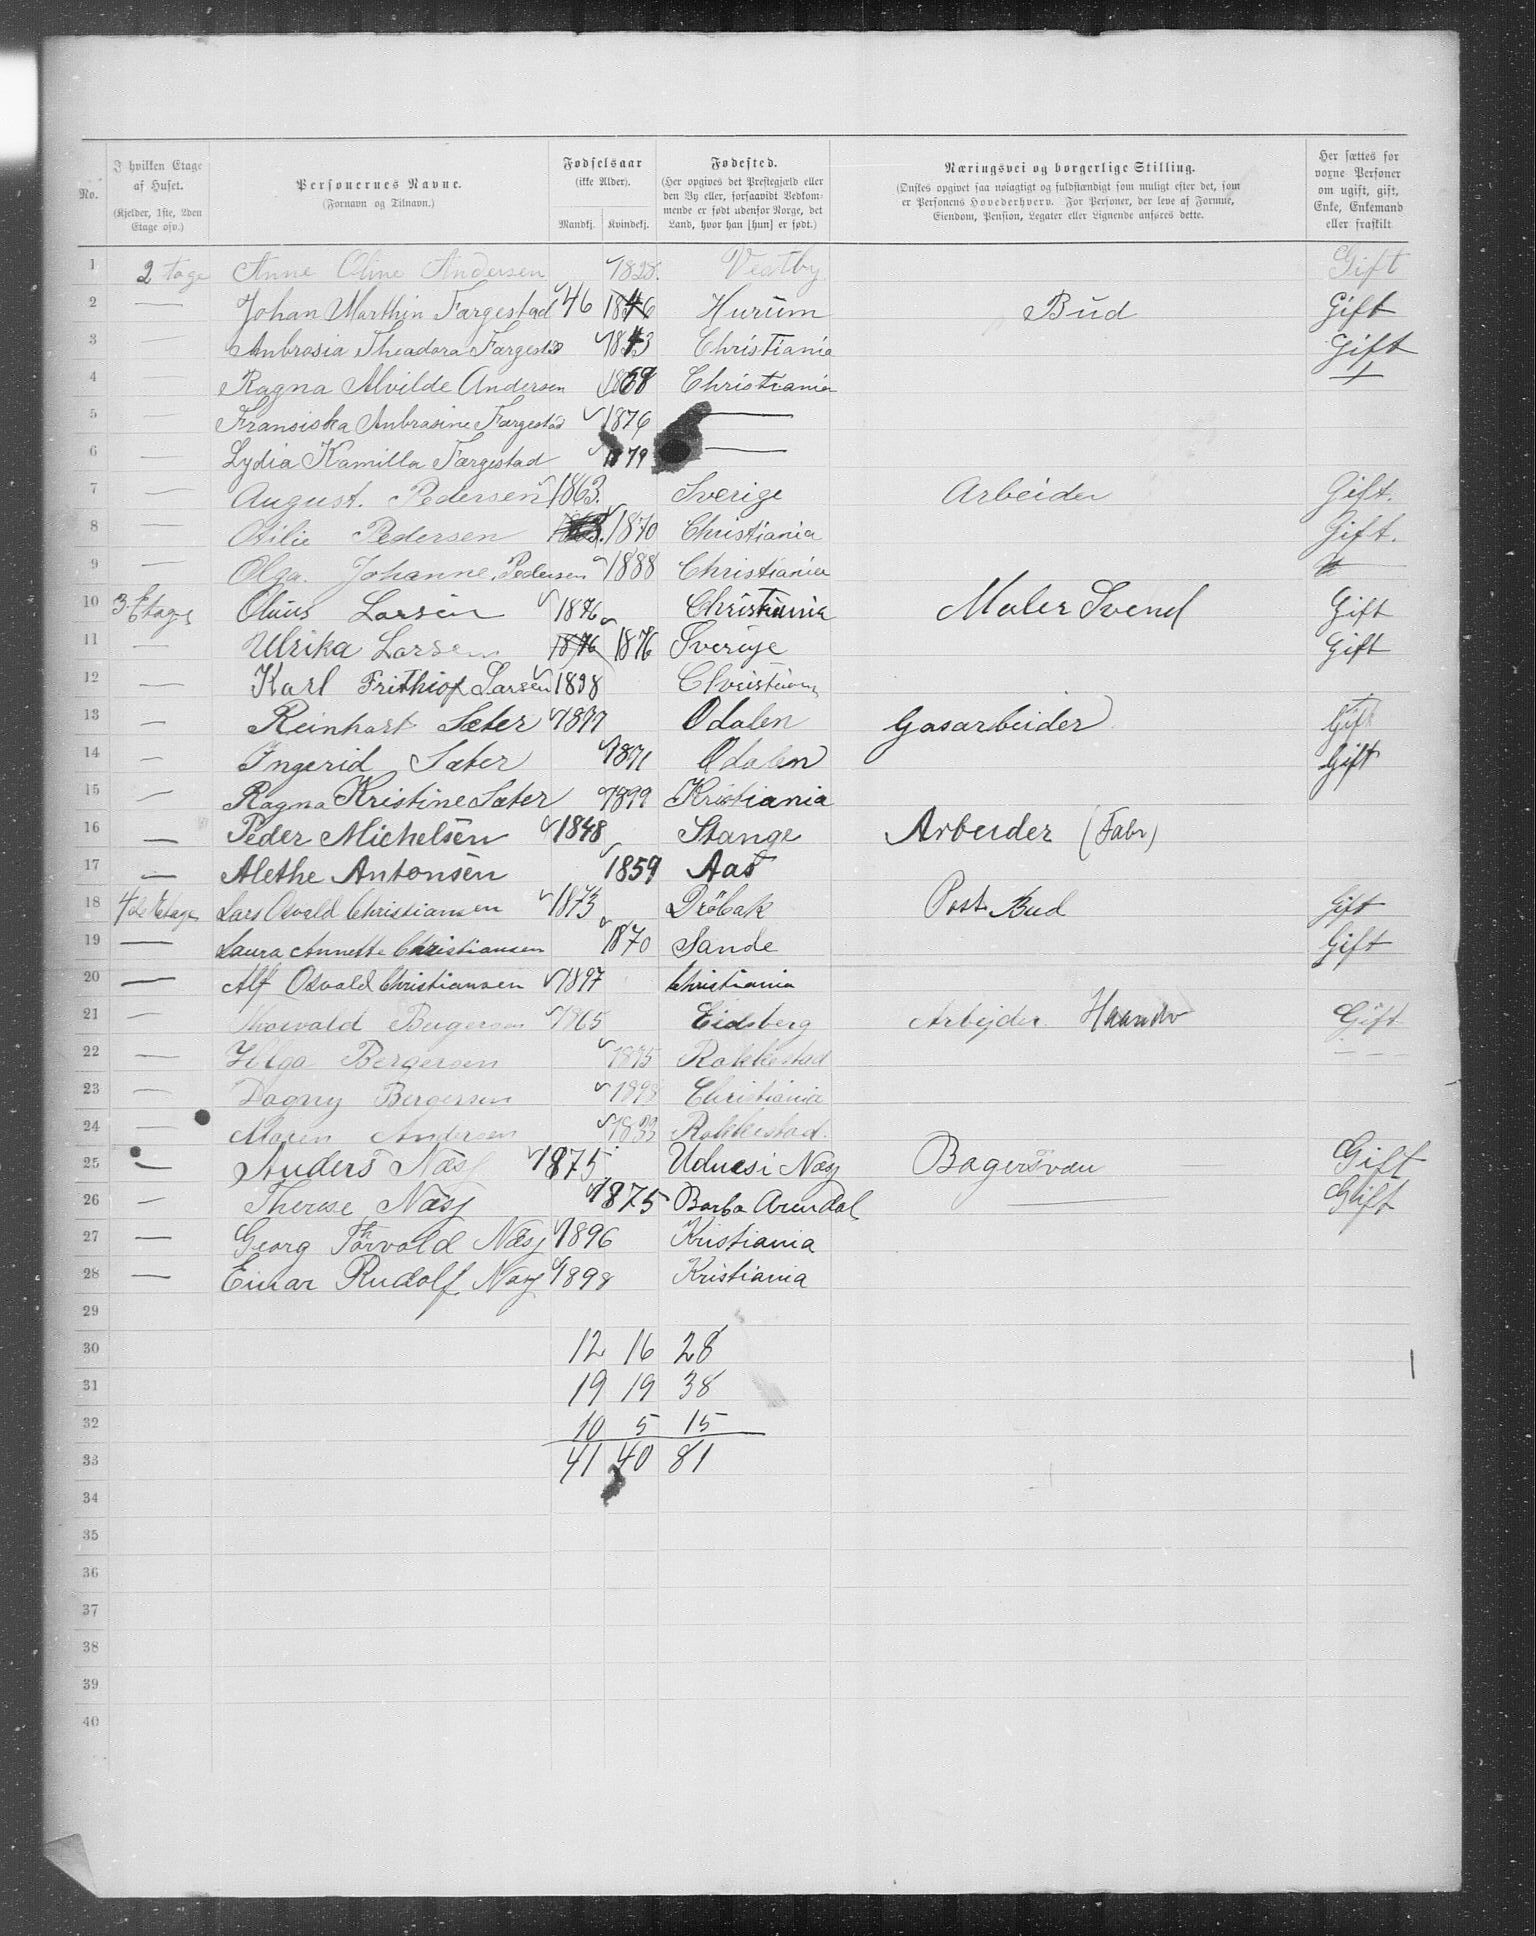 No.
I hvilken Etage af Huset. (Kjelder, 1ste, 2den Etage osv.)
Personernes Navne. (Fornavn og Tilnavn.)
Fødselsaar (ikke Alder). Mandkj. Kvindekj.
Fødested. (Her opgives det Prestegjæld eller den By eller, forsaavidt Vedkommende er født udenfor Norge, det Land, hvor han [hun] er født.)
Næringsvei og borgerlige Stilling. (Ønskes opgivet saa nøiagtigt og fuldstændigt som muligt efter det, som er Personens Hovederhverv. For Personer, der leve af Formue, Eiendom, Pension, Legater eller Lignende anføres dette.
Her sættes for voxne Personer om ugift, gift, Enke, Enkemand eller fraskilt
1 2 tage Anne Oline Andersen 1828. Vestby Gift
2 — Johan Marthin Færgestad 46 Hurum Bud Gift
3 — Anbrosia Theadora Færgestad 1843 Christiania Gift
4 — Ragna Alvilde Andersen Christiania +
5 — Fransiska Anbrasine Færgestad 1876 —
6 — Lydia Kamilla Færgestad 1879 —
7 — August. Pedersen 1863. Sverige Arbeider Gift.
8 — Otilie Pedersen 1870 Christiania Gift.
9 — Olga. Johanne. Pedersen 1888 Christiania
10 3 Etage Olaus Larsen 1876 Christiania Maler Svend Gift
11 — Ulrika Larsen 1876 1876 Sverige Gift
12 — Karl Frithiof Larsen 1898 Christiania
13 — Reinhart Sæter 1877 Odalen Gasarbeider Gift
14 — Ingerid Sæter 1871 Odalen Gift
15 — Ragna Kristine Sæter 1899 Kristiania
16 — Peder Michelsen 1848 Stange Arbeider (Fabr)
17 — Alethe Antonsen 1859 Aas
18 4de Etage Lars Osvald Christiansen 1873 Dröbak Post Bud Gift
19 — Laura Annette Christiansen 1870 Sande Gift
20 — Alf Osvald Christiansen 1897 Christiania
21 — Thorvald Bergersen 1865 Eidsberg Arbejder Haandv Gift
22 — Helga Bergersen 1875 Rakkestad - - -
23 — Dagny Bergersen 1898 Christiania
24 — Maren Andersen 1833 Rakkestad.
25 — Anders Næsj 1875 Udnesi Næsj Bagersven Gift
26 — Therese Næsj 1875 Barbo Arendal — Gift
27 — Georg Thorvald Næsj 1896 Kristiania
28 — Einar Rudolf Næsj 1898 Kristiania
29
30 12 16 28
31 19 19 38
32 10 5 15
33 41 40 81
34
35
36
37
38
39
40